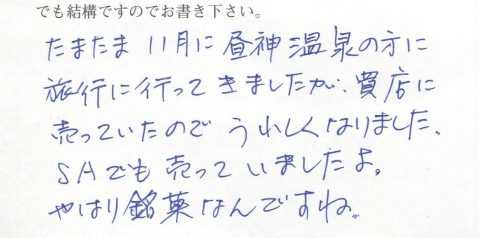 でも結構ですのでお書き下さい。
たまたま 11月に昼神温泉の方に
旅行に行ってきましたが、買店に
売っていたので うれしくなりました、
SAでも売っていましたよ。
やはり銘菓なんですね。